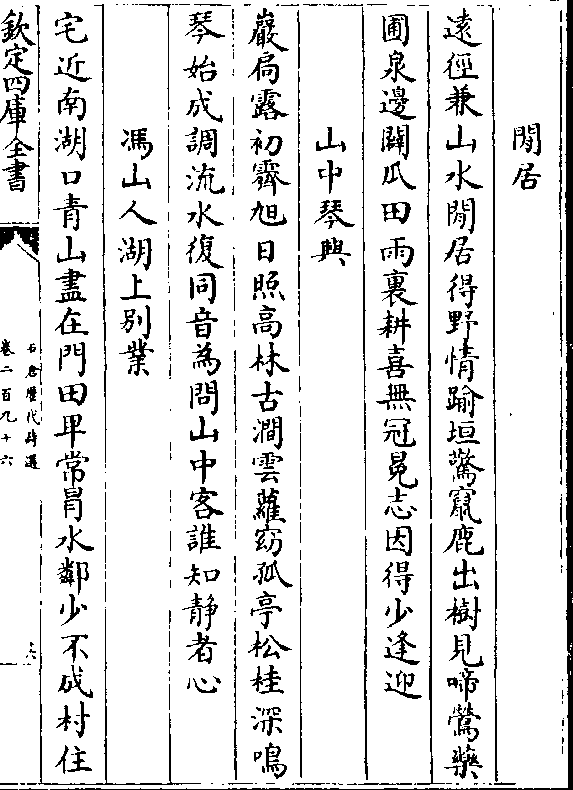 閒居
逺徑兼山水閒居得野情踰垣驚竄鹿出樹見啼鶯藥
圃泉邊闢瓜田雨裏耕喜無冠冕志因得少逢迎
山中琴興
巖扃露初霽旭日照高林古澗雲蘿窈孤亭松桂深鳴
琴始成調流水復同音為問山中客誰知静者心
馮山人湖上别業
宅近南湖口青山盡在門田卑常冒水鄰少不成村住
欽定四庫全書
石倉歷代詩選
卷二百九十六
十六